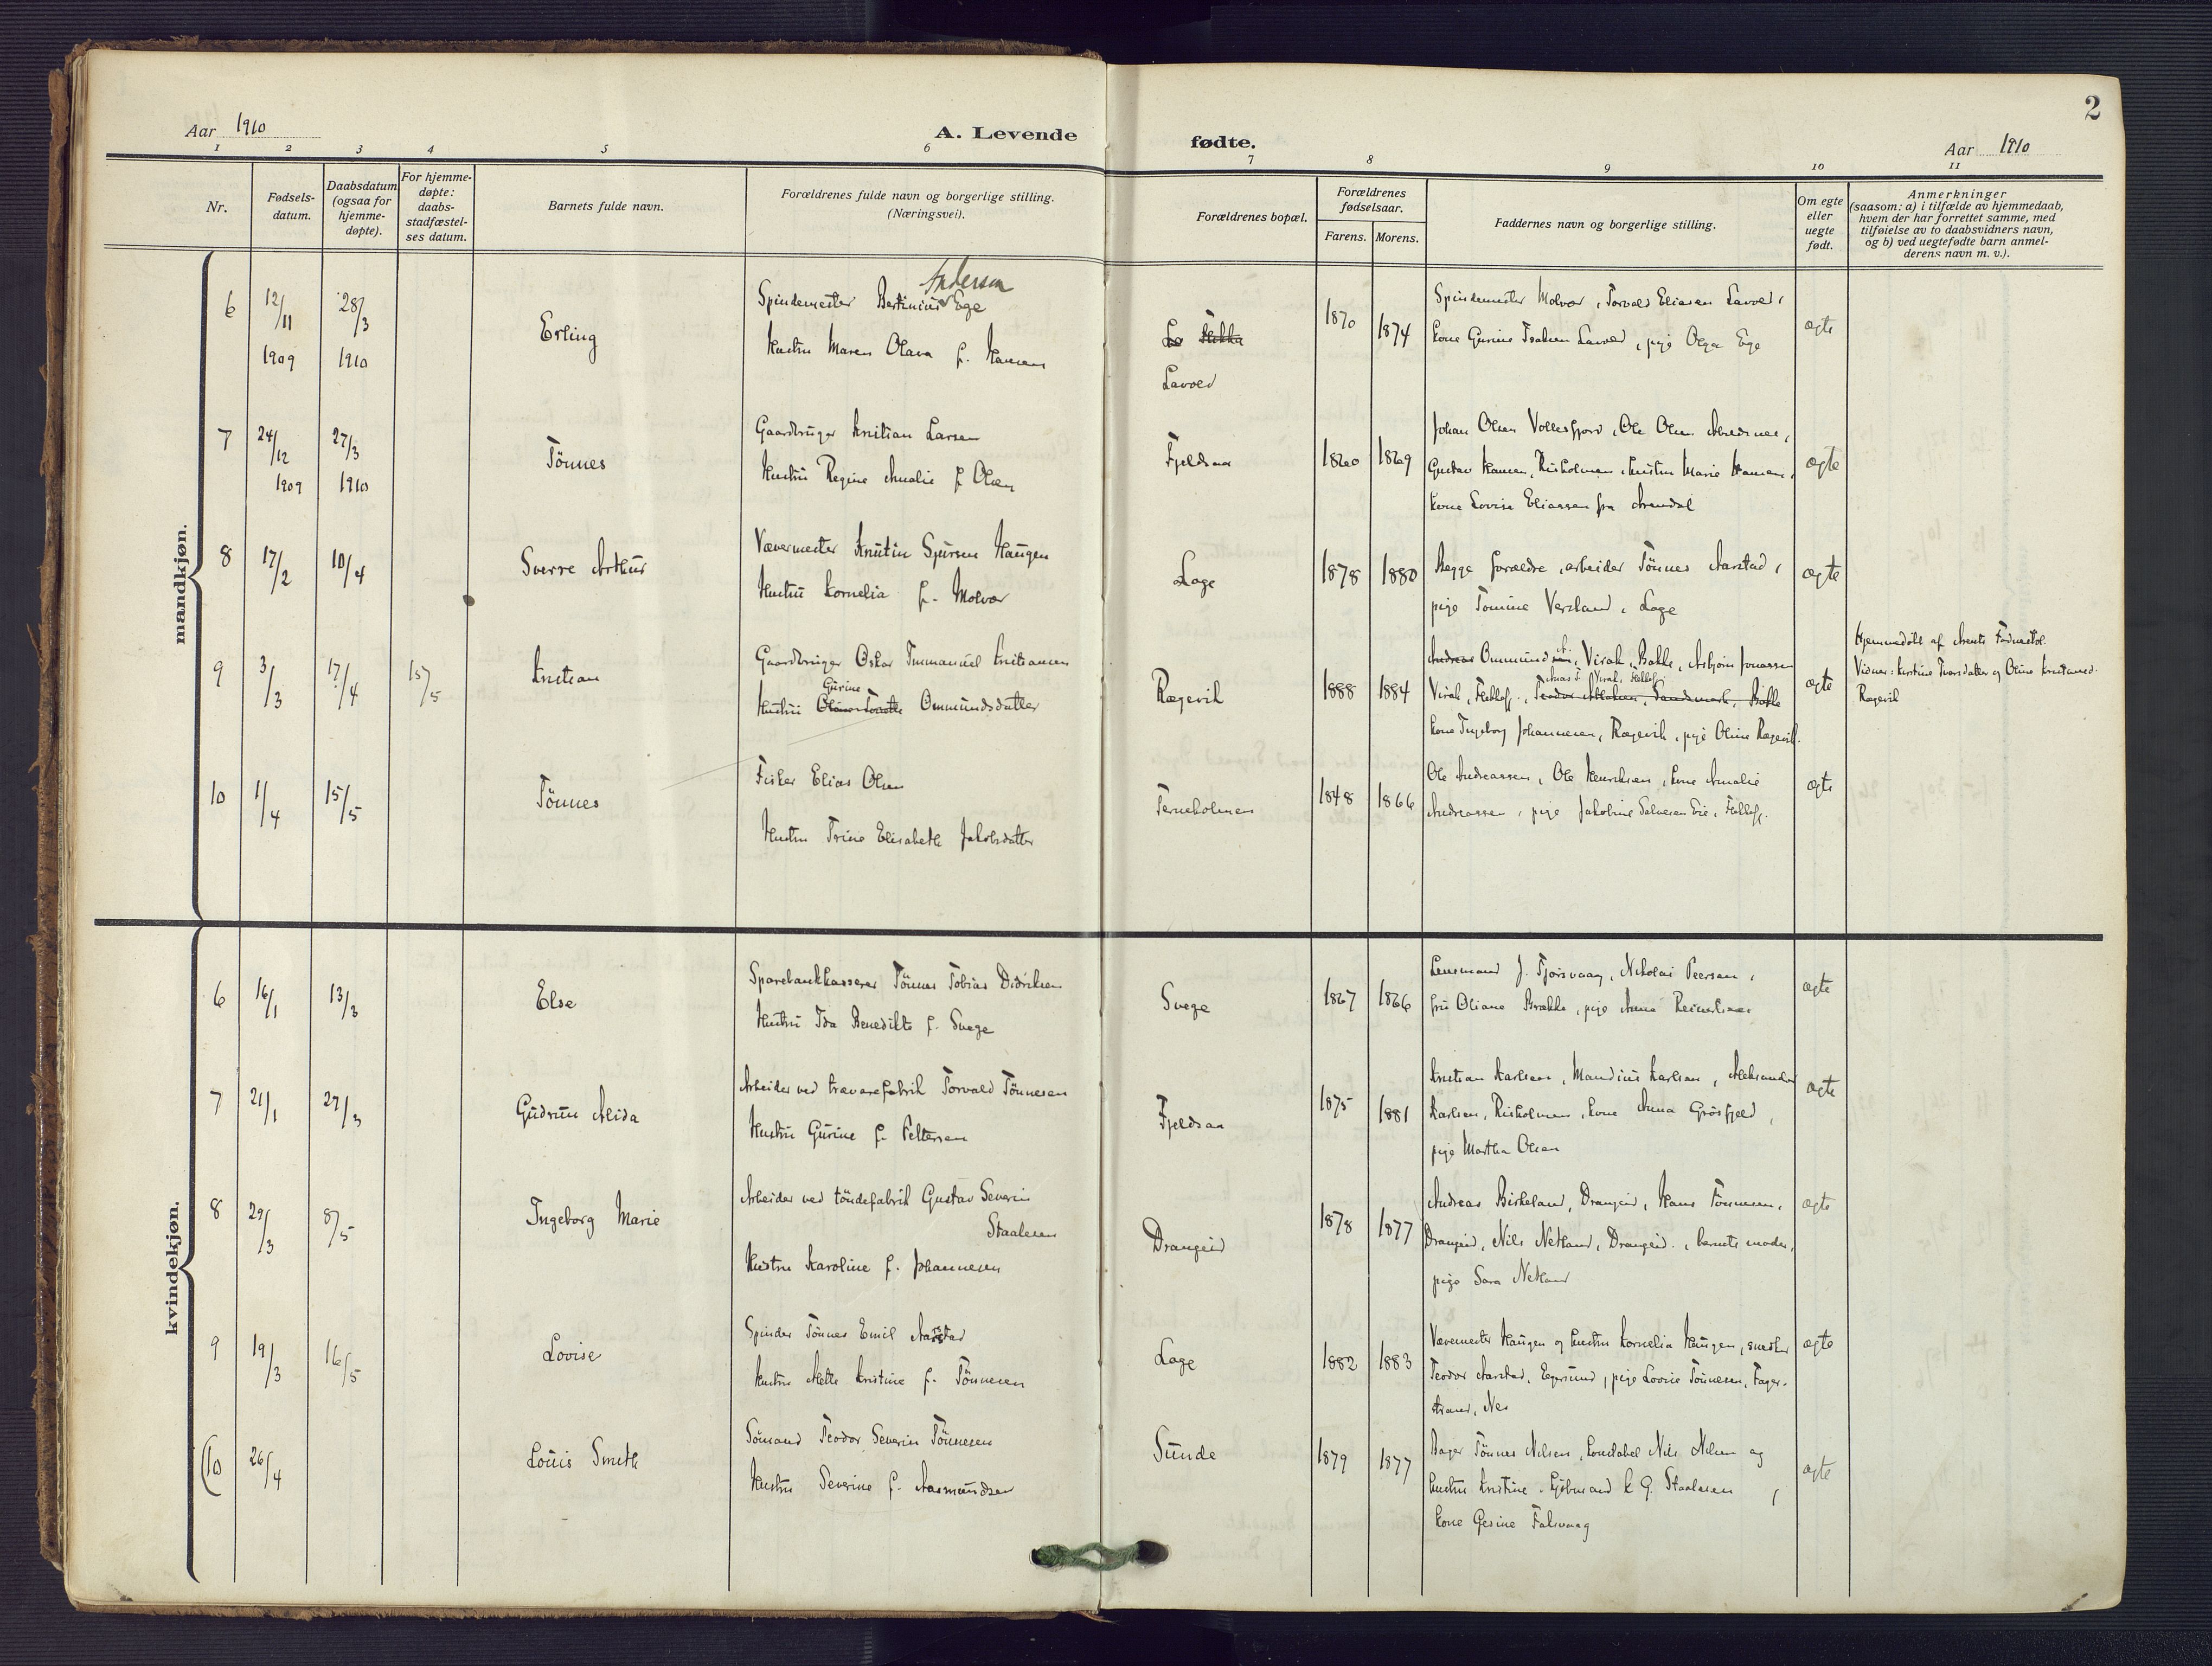 2
Aar 1910
A. Levende fødte.
Aar 1910
1 2 3 4 5 6 7 8 9 10 11
Nr.
Fødsels-
datum.
Daabsdatum
(ogsaa for
hjemme-
døpte).
For hjemme-
døpte:
daabs-
stadfæstel-
ses datum.
Barnets fulde navn.
Forældrenes fulde navn og borgerlige stilling.
(Næringsvei).
Forældrenes bopæl.
Forældrenes
fødselsaar.
Farens. Morens.
Faddernes navn og borgerlige stilling.
Om egte
eller
uegte
født.
Anmerkninger
(saasom: a) i tilfælde av hjemmedaab,
hvem der har forrettet samme, med
tilføielse av to daabsvidners navn,
og b) ved uegtefødte barn anmel-
derens navn m. v.).
mandkjøn.
6 12/11 1909 28/3 1910
Erling
Andersen
Spindemester Bertinius Ege
Hustru Maren Olava f. Hansen
Lavold
1870 1874
Spindemester Molvær, Torvald Eliasen Lavold,
kone Gurine Isaksen Lavold, pige Olga Ege
ægte
7 24/12 1909 27/3 1910
Tönnes
Gaardbruger Kristian Larsen
Hustru Regine Amalie f. Olsen
Fjeldsaa
1860 1869
Johan Olsen Vollesfjord, Ole Olsen
Gustav Hansen, Risholmen, Marie Hansen,
kone Lovise Eliassen fra Arendal
ægte
8 17/2 10/4
Sverre Arthur
Vævermester Kristin Sjursen Haugen
Hustru Kornelia f. Molvær
Loge
1878 1880
Begge forældre, arbeider Tönnes Aarstad,
pige Tomine Versland, Loge
ægte
9 3/3 17/4 15/5
Kristian
Gaardbruger Oskar Immanuel Kristiansen
Gurine
Hustru Ommundsdatter
Rægevik
1888 1884
Andreas Ommundsen, Virak, Bakke, Asbjørn Jonassen
Virak, Flekkefj., Teodor Abrahamsen, Sandsmark, Bakke
kone Ingeborg Johannesen, Rægevik, pige Oline Rægevik.
ægte
Hjemmedöbt af
Vidner: og Oline
Rægevik
10 1/4 15/5
Tönnes
Fisker Elias Olsen
Hustru Trine Elisabeth Jakobsdatter
Terneholmen
1848 1866
Ole Andreassen, Ole Henriksen, kone Amalie
Andreassen, pige Jakobine Salvesen, Flekkefj.
ægte
kvindekjøn.
6 16/1 13/3
Else
Sparebankkasserer Tönnes Tobias Didriksen
Hustru Ida Benedikte f. Svege
Svege
1867 1866
Lensmand J. Tjorsvaag, Nikolai Peersen,
fru Oliane Brække, pige Anna Reinertsen
ægte
7 21/1 27/3
Gudrun Alida
Arbeider ved trævarefabrik Torvald Tönnesen
Hustru Gurine f. Pettersen
Fjeldsaa
1875 1881
Kristian Karlsen, Mandius Karlsen, Aleksander
Karlsen, Risholmen, kone Anna Grösfjeld,
pige Martha Olsen
ægte
8 29/3 8/5
Ingeborg Marie
Arbeider ved töndefabrik Gustav Severin
Staalesen
Hustru Karoline f. Johannesen
Drangeid
1878 1877
Andreas Birkeland, Drangeid, Hans Tönnesen,
Drangeid, Nils Netland, Drangeid, barnets moder,
pige Sara Netland
ægte
9 19/3 16/5
Lovise
Spinder Tönnes Emil Aarstad
Hustru Mette Kristine f. Tönnesen
Loge
1882 1883
Vævemester Haugen og hustru Kornelia Haugen, snedker
Teodor Aarstad, Egersund, pige Lovise Tönnesen, Fager-
strand, Nes
ægte
(10 26/4
Louis Smith
Sömand Teodor Severin Tönnesen
Hustru Severine f. Aasmundsen
Sunde
1879 1877
Bager Tönnes Nilsen, konstabel Nils Nilsen og
hustru Kristine, kjöbmand K. G. Staalesen,
kone Gesine Falsvaag
ægte